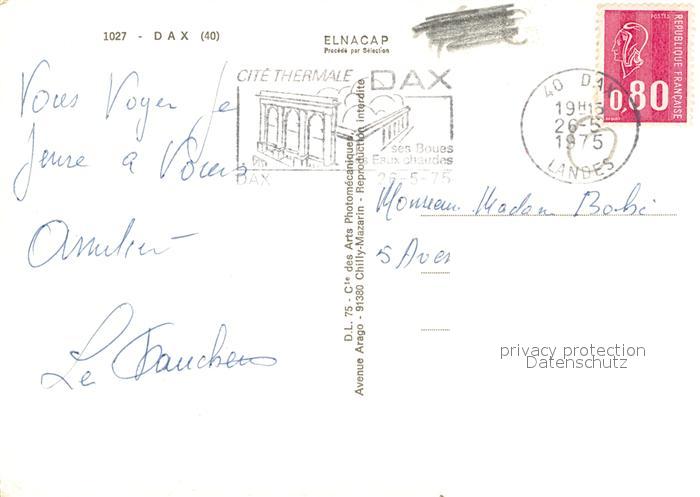 1027 - DAX (40)
ELNACAP
Procédé par Sélection
CITÉ THERMALE DAX
ses Boues
Eaux chaudes
DAX 26-5-75
40 DAX
19H15
26-5
1975
LANDES
POSTES
REPUBLIQUE FRANÇAISE
0,80
Vous Voyer Je
pense a Vous
Amitiés
Le
D.L. 75 - Cte des Arts Photomécaniques
Avenue Arago - 91380 Chilly-Mazarin - Reproduction interdite
Monsieur Madam
5 Aves
privacy protection
Datenschutz